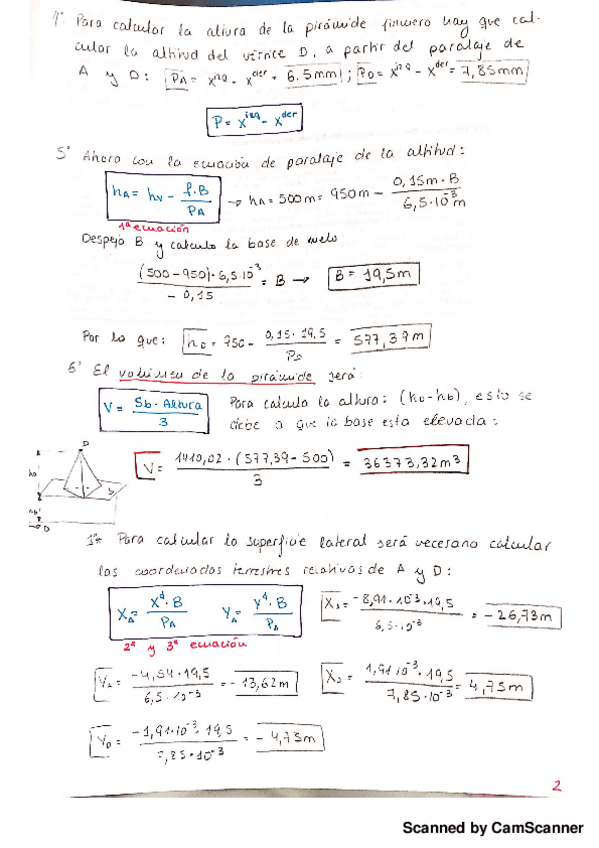 4º Para calcular la altura de la pirámide primero hay que cal-
cular la altitud del vérice D, a partir del paralaje de
A y D: PA = x^izq - x^der = 6.5mm ; PD = x^izq - x^der = 7,85mm
P = x^izq - x^der
5º Ahora con la ecuación de paralaje de la altitud:
hA = hv - f·B / PA → hA = 500m = 950m - 0,15m·B / 6,5·10^-3 m
1ª ecuación
Despejo B y calculo la base de
(500-950)·6,5·10^-3 / -0,15 = B → B = 19,5m
Por lo que: hD = 950 - 0,15·19,5 / PD = 577,39m
6º El volumen de la pirámide será:
V = Sb·Altura / 3 Para calcula la altura: (hD-hb), esto se
debe a que la base esta elevada:
V = 1410,02·(577,39-500) / 3 = 36373,32m³
D
hD
hb
b
Para calcular la superficie lateral será necesario calcular
las coordenadas terrestres relativas de A y D:
XA = x^A·B / PA YA = y^A·B / PA XA = -8,91·10^-3·19,5 / 6,5·10^-3 = -26,73m
2ª y 3ª ecuación
YA = -4,54·19,5 / 6,5·10^-3 = -13,62m XD = 1,91·10^-3·19,5 / 7,85·10^-3 = 4,75m
YD = -1,91·10^-3·19,5 / 7,85·10^-3 = -4,75m
2
Scanned by CamScanner